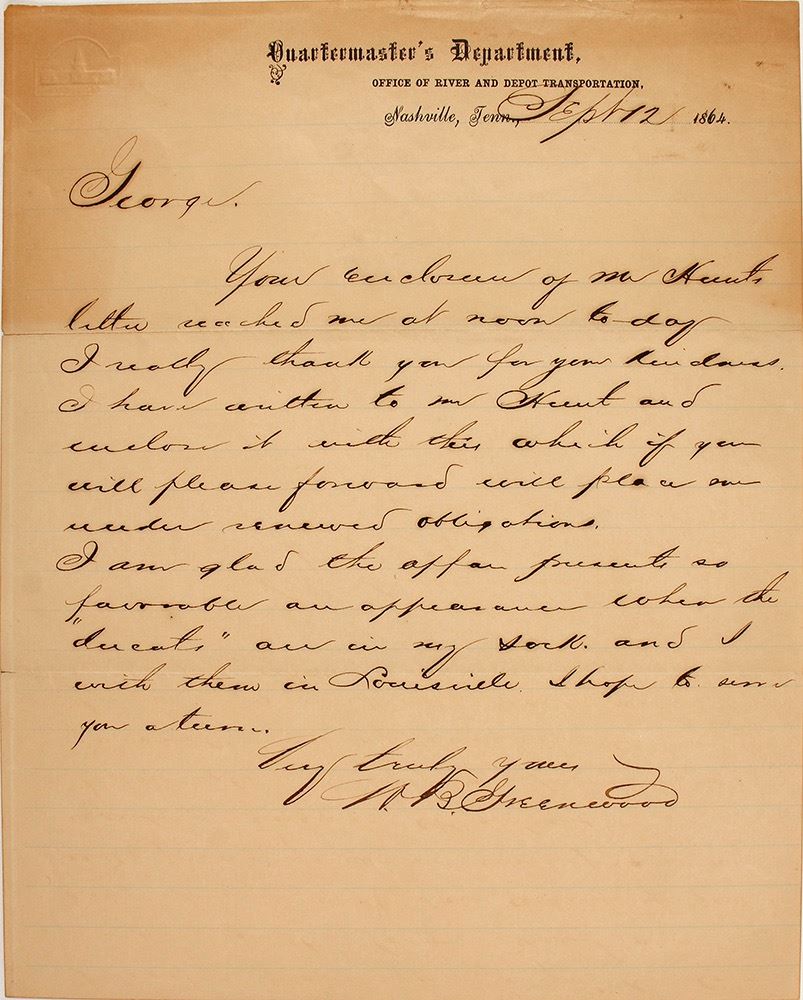 Quartermaster's Department,
OFFICE OF RIVER AND DEPOT TRANSPORTATION,
Nashville, Tenn., Sept 12 1864.
George.
Your enclosure of Mr Hunts
letter reached me at noon to-day
I really thank you for your kindness.
I have written to Mr Hunt and
enclose it with this which if you
will please forward will place me
under renewed obligations.
I am glad the affair presents so
favorable an appearance when the
"ducats" are in my sock. and I
with them in Louisville. I hope to serve
you a turn.
Very truly yours
W. B. Greenwood